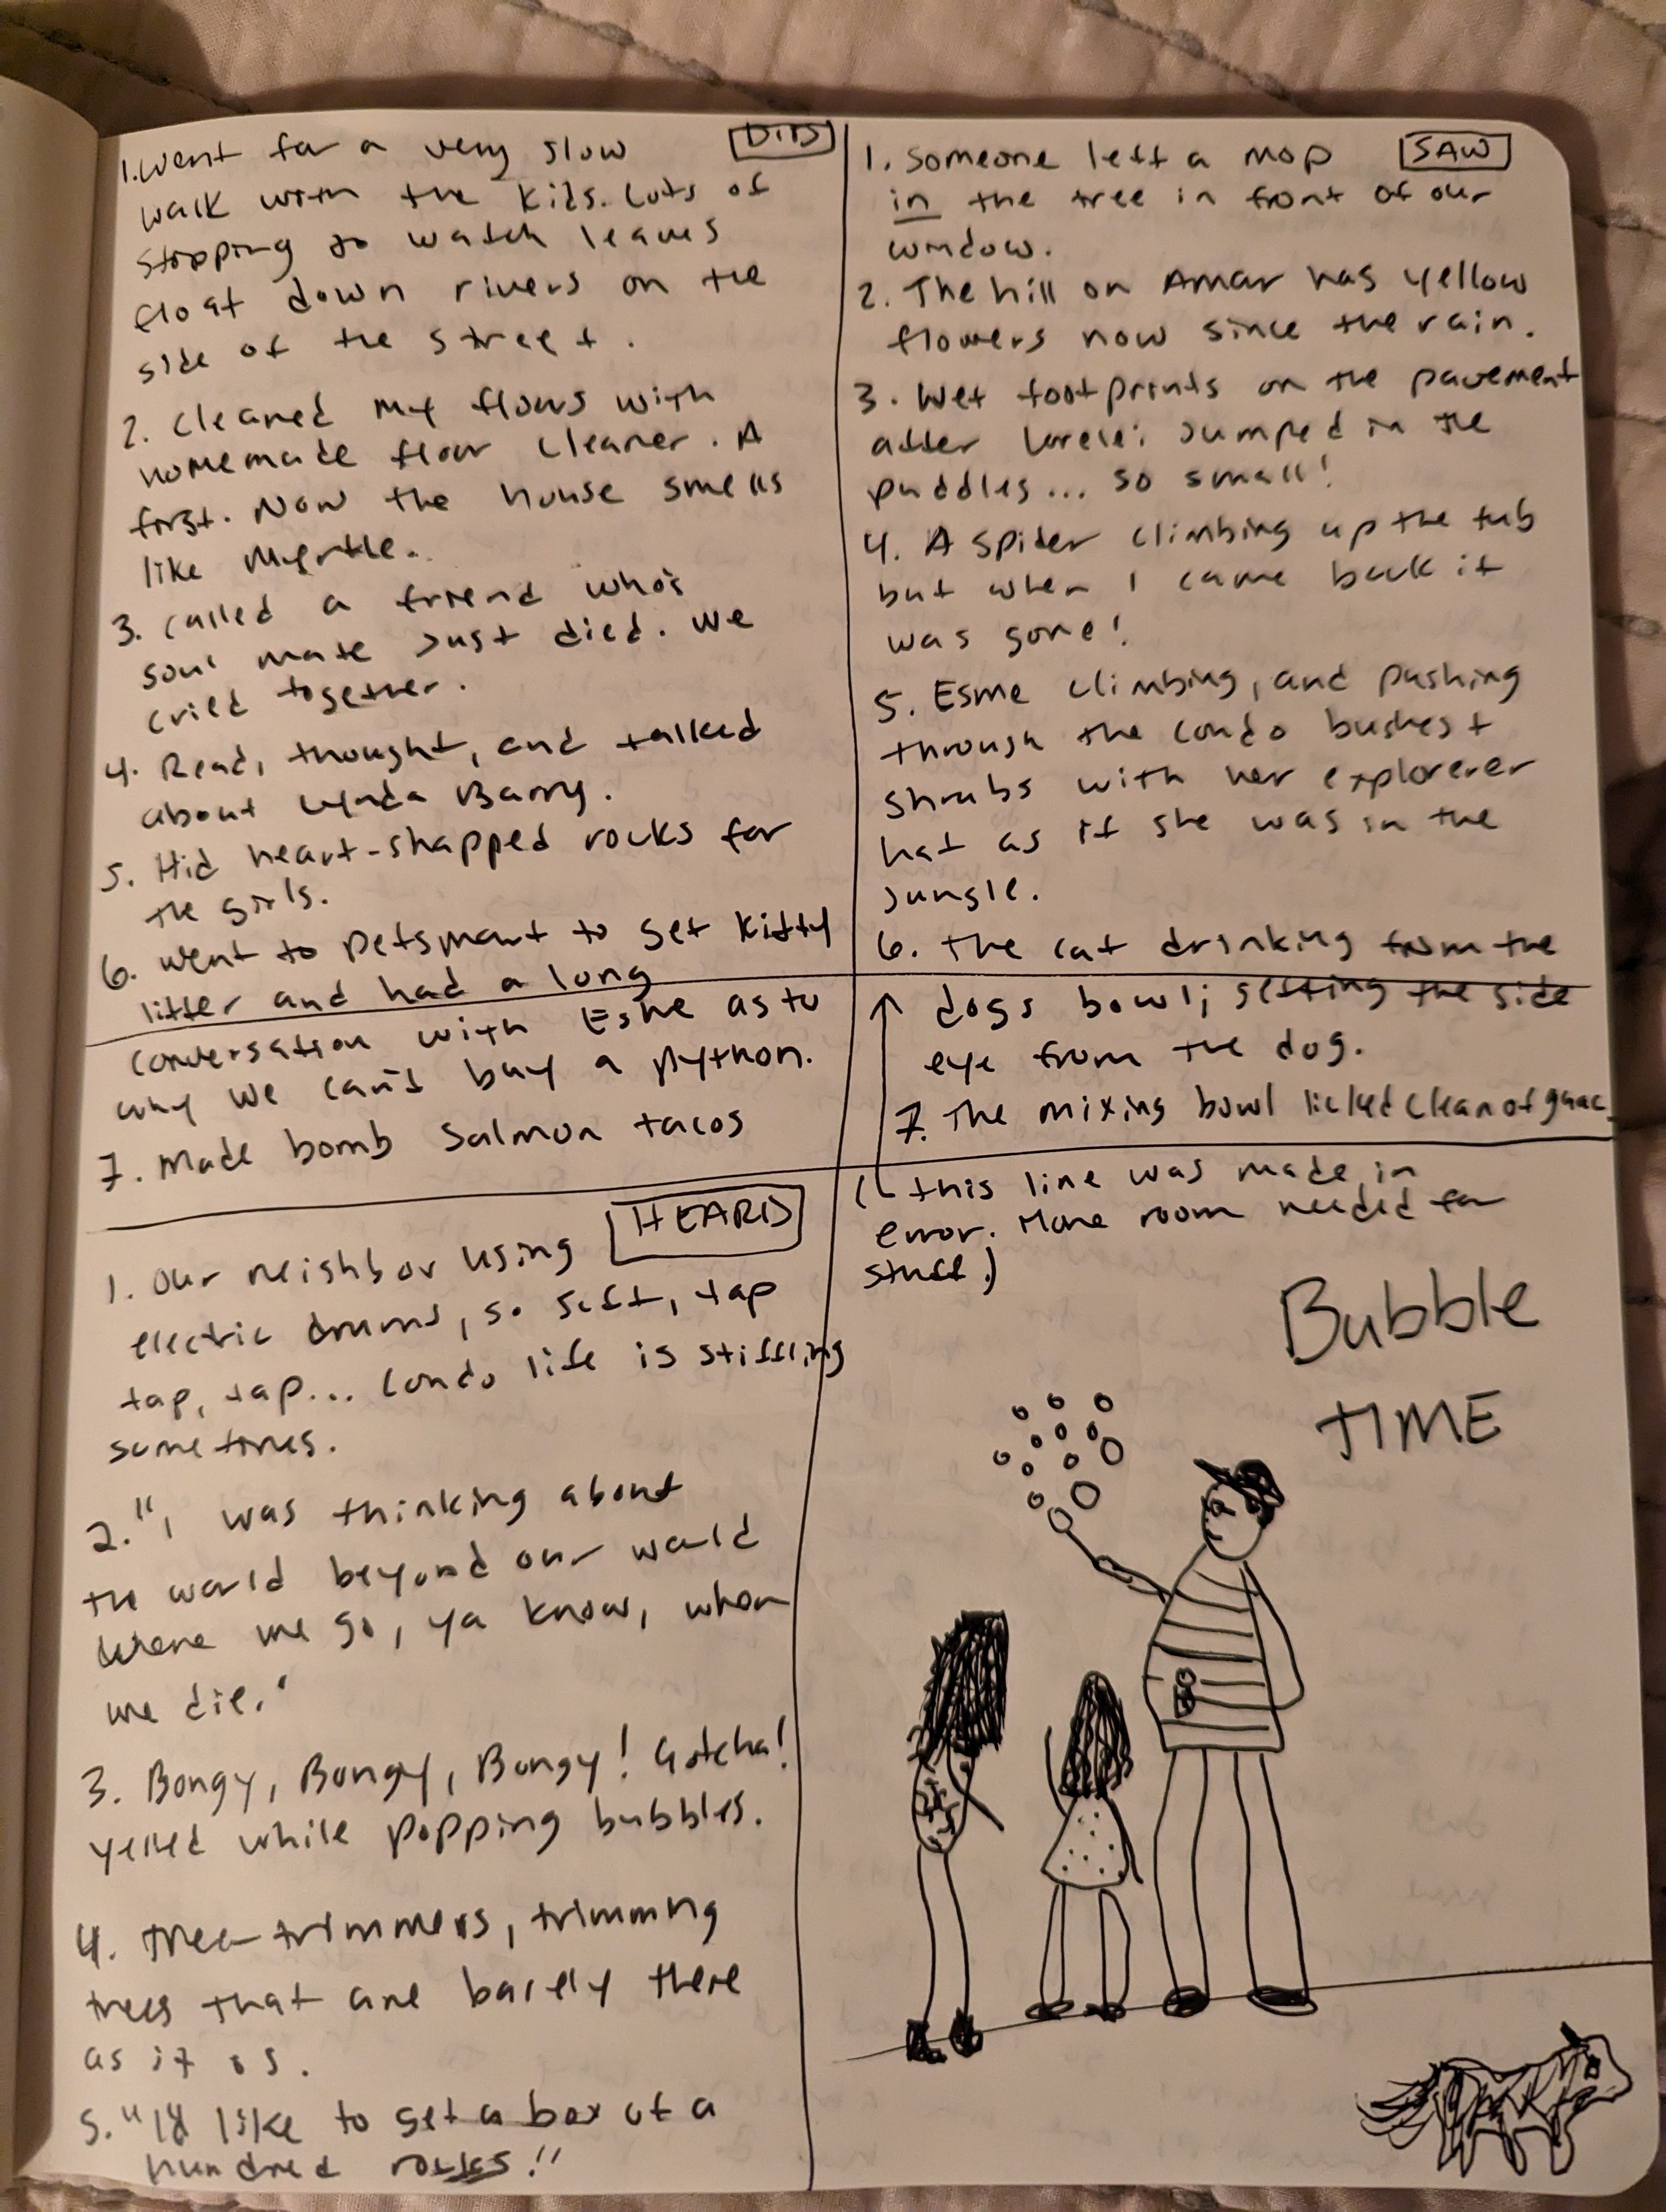 DID
1. Went for a very slow
walk with the kids. Lots of
stopping to watch leaves
float down rivers on the
side of the street.
2. Cleaned my floors with
homemade floor cleaner. A
first. Now the house smells
like Myrtle.
3. Called a friend who's
soul mate just died. We
cried together.
4. Read, thought, and talked
about Lynda Barry.
5. Hid heart-shapped rocks for
the girls.
6. Went to petsmart to get kitty
litter and had a long
conversation with Esme as to
why we can't buy a python.
7. Made bomb salmon tacos
SAW
1. Someone left a mop
in the tree in front of our
window.
2. The hill on Amar has yellow
flowers now since the rain.
3. Wet footprints on the pavement
after Lorelei jumped in the
puddles... so small!
4. A spider climbing up the tub
but when I came back it
was gone!
5. Esme climbing, and pushing
through the condo bushes +
shrubs with her explorerer
hat as if she was in the
jungle.
6. The cat drinking from the
dogs bowl; getting the side
eye from the dog.
7. The mixing bowl licked clean of guac.
(this line was made in
error. More room needed for
stuff.)
HEARD
1. Our neighbor using
electric drums, so soft, tap
tap, tap... Condo life is stiffling
sometimes.
2. "I was thinking about
the world beyond our world
where we go, ya know, when
we die."
3. Bongy, Bongy, Bongy! Gotcha!
yelled while popping bubbles.
4. Tree-trimmers, trimming
trees that are barely there
as it is.
5. "I'd like to get a box of a
hundred rocks!"
Bubble
TIME